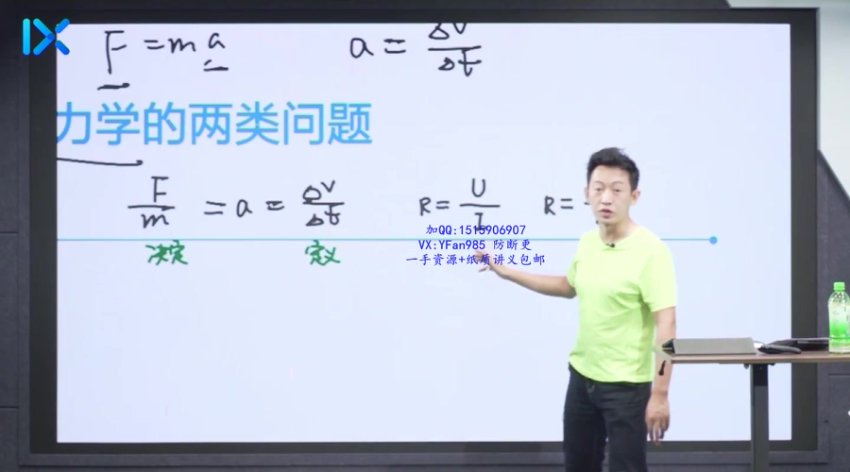 IX
F = ma a = Δv/Δt
力学的两类问题
F/m = a = Δv/Δt R = U/I R =
决定 定义
加QQ:1515906907
VX:YFan985 防断更
一手资源+纸质讲义包邮